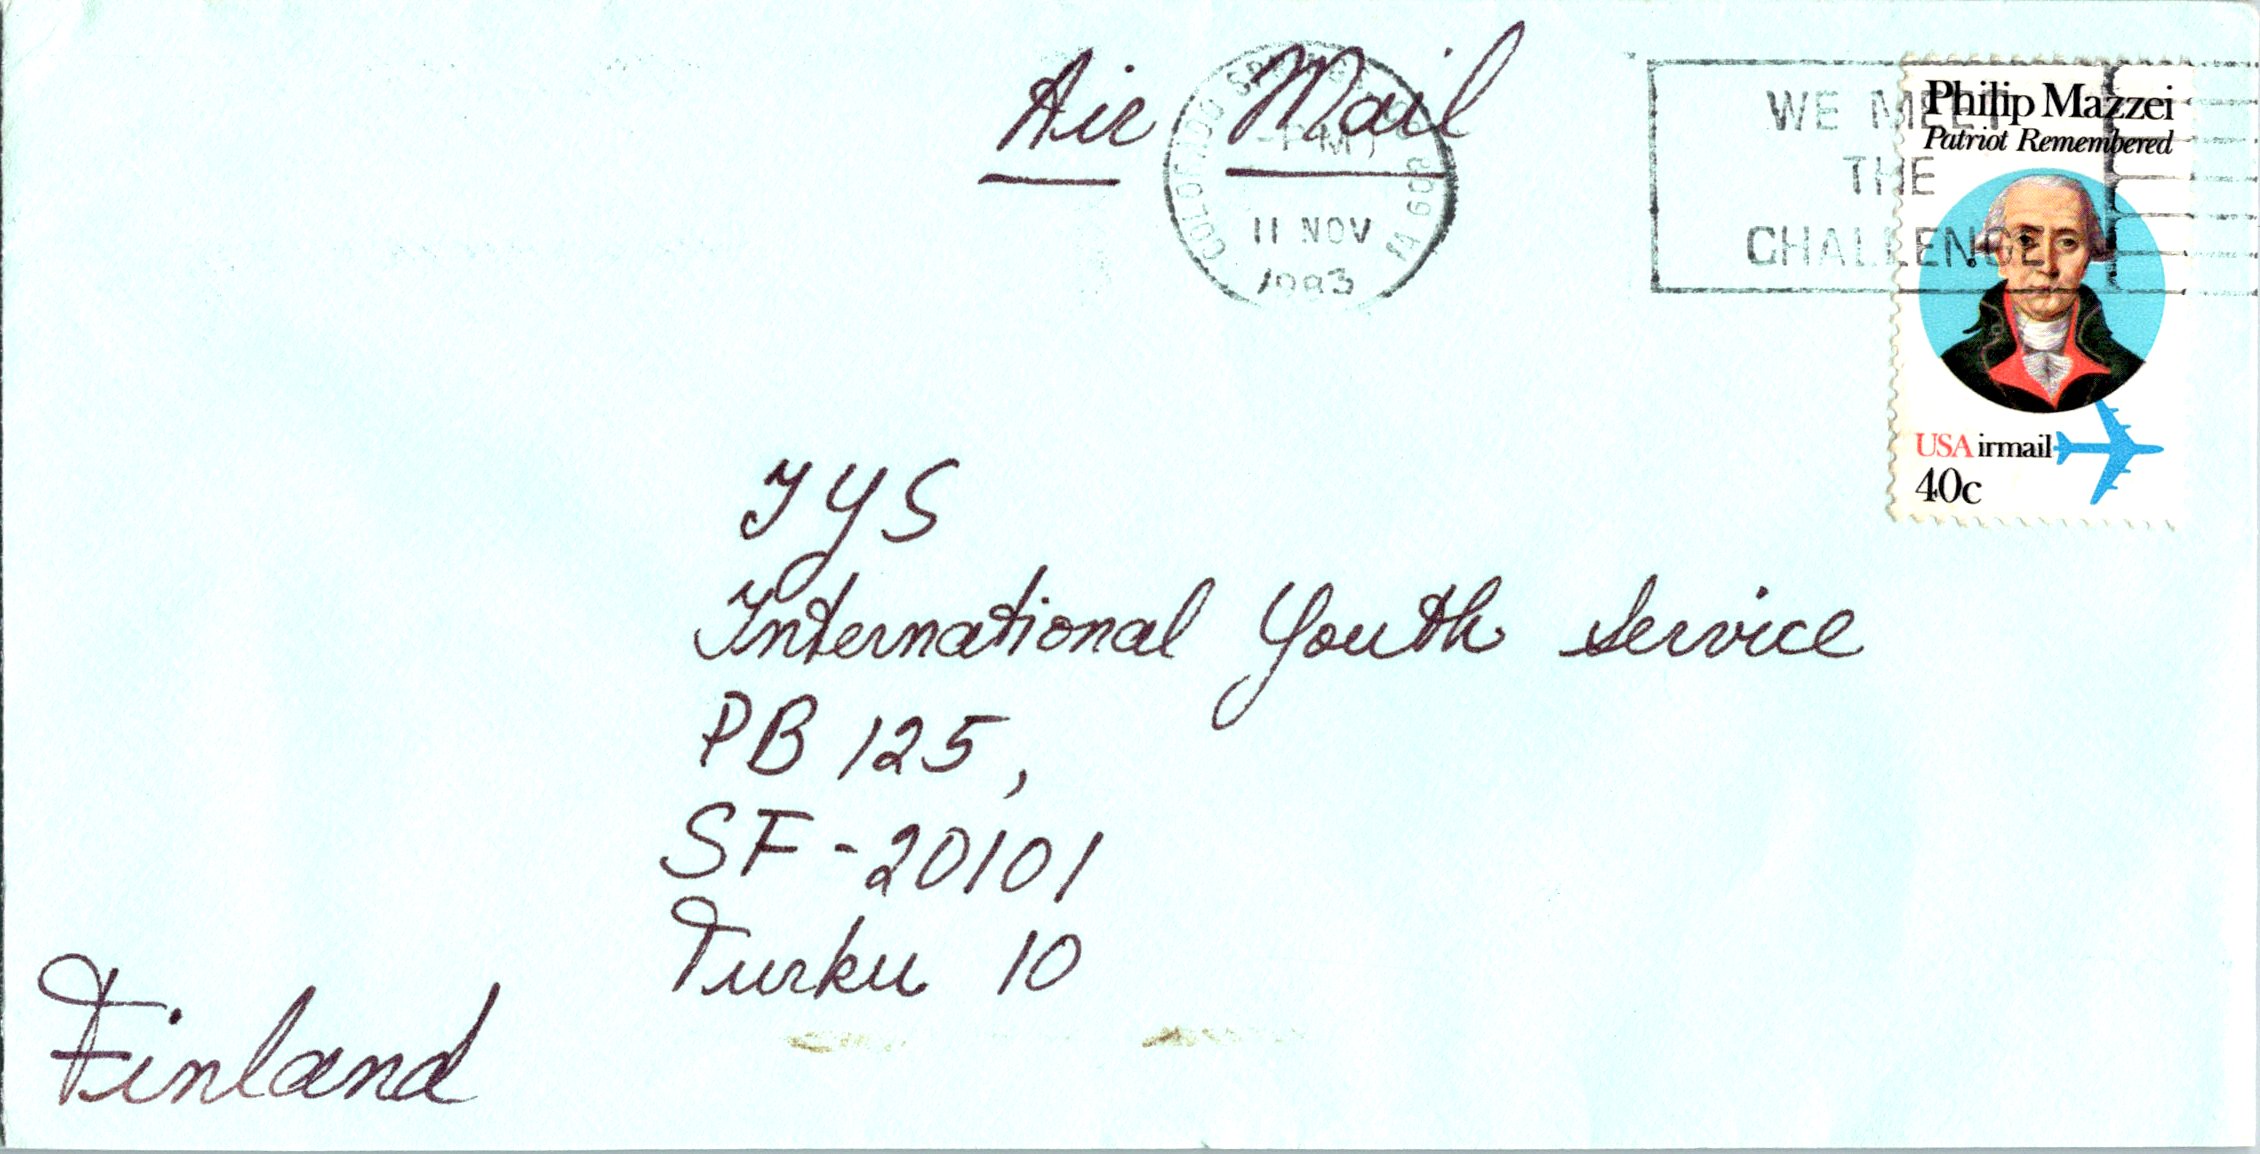 Air Mail
COLORADO SPRINGS, CO
PM
11 NOV
1983
WE MEET
THE
CHALLENGE
Philip Mazzei
Patriot Remembered
USAirmail
40c
IYS
International Youth Service
PB 125,
SF-20101
Turku 10
Finland